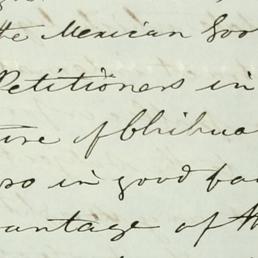 the Mexican Gov
Petitioners in
ture of Chihua
so in good fa
vantage of th